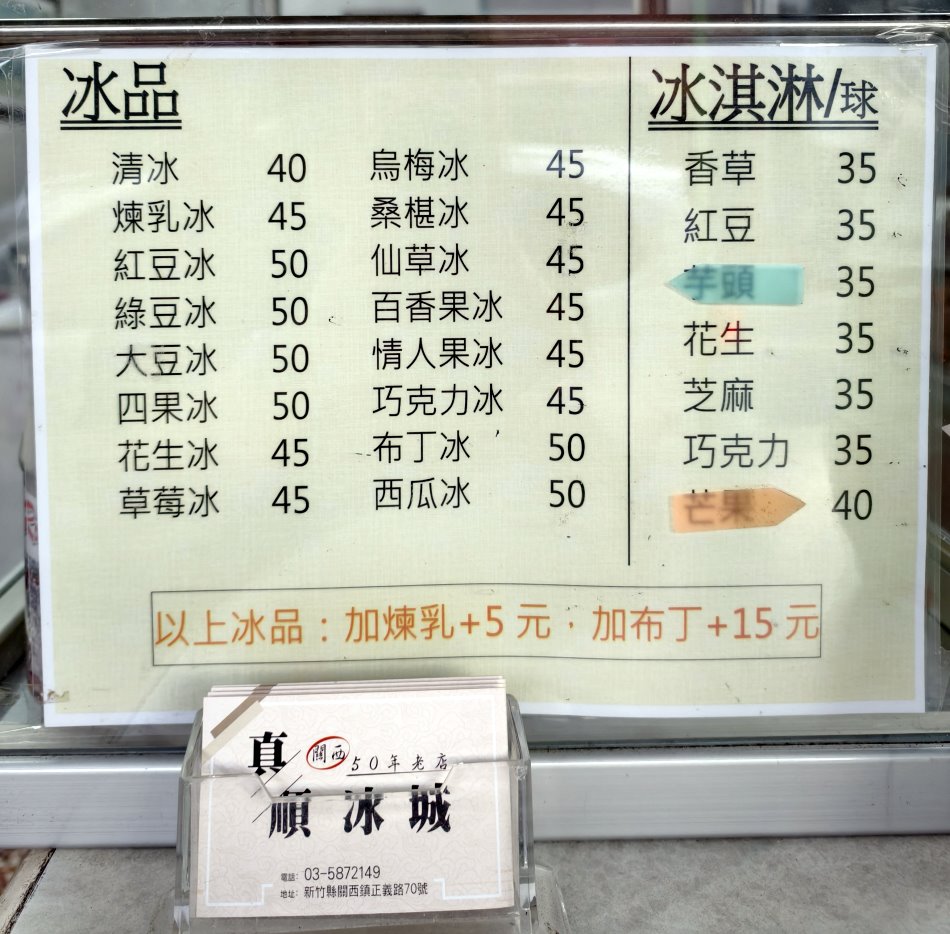 冰品
清冰 40
煉乳冰 45
紅豆冰 50
綠豆冰 50
大豆冰 50
四果冰 50
花生冰 45
草莓冰 45
烏梅冰 45
桑椹冰 45
仙草冰 45
百香果冰 45
情人果冰 45
巧克力冰 45
布丁冰 50
西瓜冰 50
冰淇淋/球
香草 35
紅豆 35
芋頭 35
花生 35
芝麻 35
巧克力 35
芒果 40
以上冰品：加煉乳+5 元，加布丁+15 元
真 關西 50年老店
順冰城
電話: 03-5872149
地址: 新竹縣關西鎮正義路70號